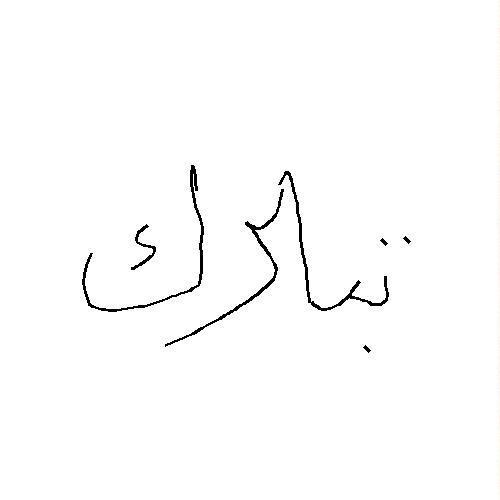 تبارك